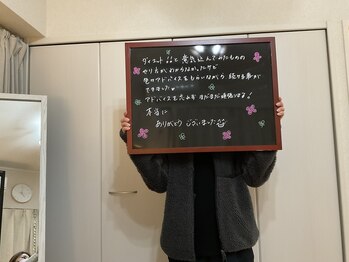 ダイエット!!と意気込んでみたものの
やり方がわからなかったけど
毎日アドバイスをもらいながら 続ける事が
できました
アドバイスを元に まだまだ頑張ります!
本当に
ありがとう ございました